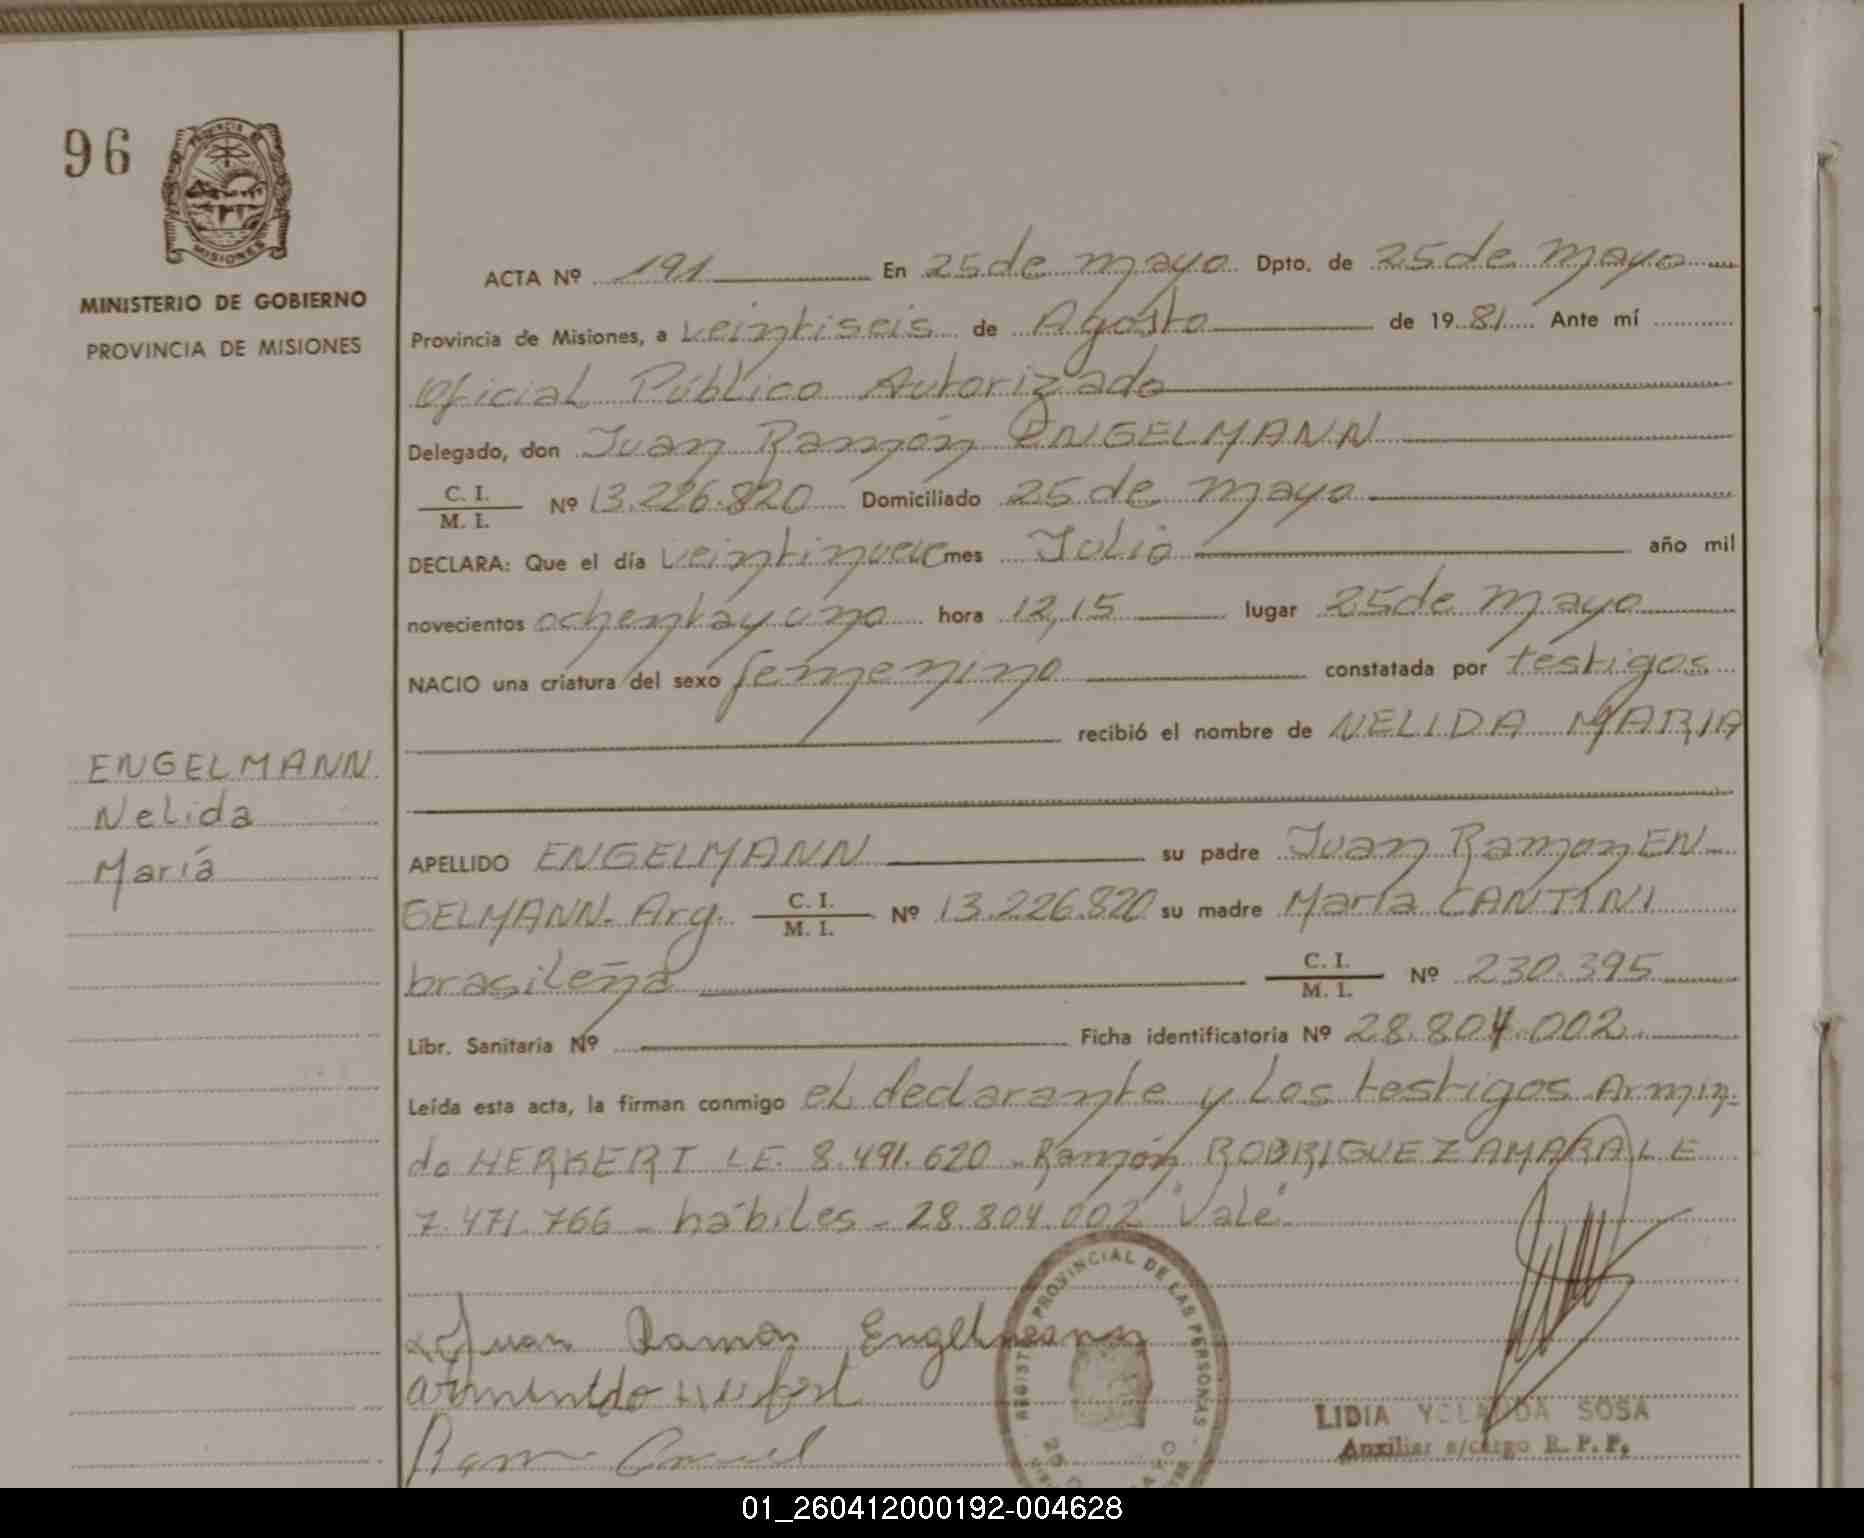 96
PROVINCIA DE
MISIONES
MINISTERIO DE GOBIERNO
PROVINCIA DE MISIONES
ENGELMANN
Nelida
María
ACTA Nº 191 En 25 de mayo Dpto. de 25 de mayo
Provincia de Misiones, a veintiseis de Agosto de 1981 Ante mí
Oficial Público Autorizado
Delegado, don Juan Ramón ENGELMANN
C. I.
M. I. Nº 13.226.820 Domiciliado 25 de mayo
DECLARA: Que el día veintinueve mes Julio año mil
novecientos ochenta y uno hora 12,15 lugar 25 de mayo
NACIO una criatura del sexo femenino constatada por testigos
recibió el nombre de NELIDA MARIA
APELLIDO ENGELMANN su padre Juan Ramon EN
GELMANN. Arg. C. I. M. I. Nº 13.226.820 su madre María CANTINI
brasileña C. I. M. I. Nº 230.395
Libr. Sanitaria Nº Ficha identificatoria Nº 28.804.002
Leída esta acta, la firman conmigo el declarante y los testigos Armin-
do HERKERT LE. 8.491.620 - Ramón RODRIGUEZ AMARAL E
7.471.766 - hábiles - 28.804.002 "Vale"
REGISTRO PROVINCIAL DE LAS PERSONAS
Juan Ramon Engelmann
LIDIA YOLANDA SOSA
Auxiliar a/cargo R. P. P.
01_260412000192-004628